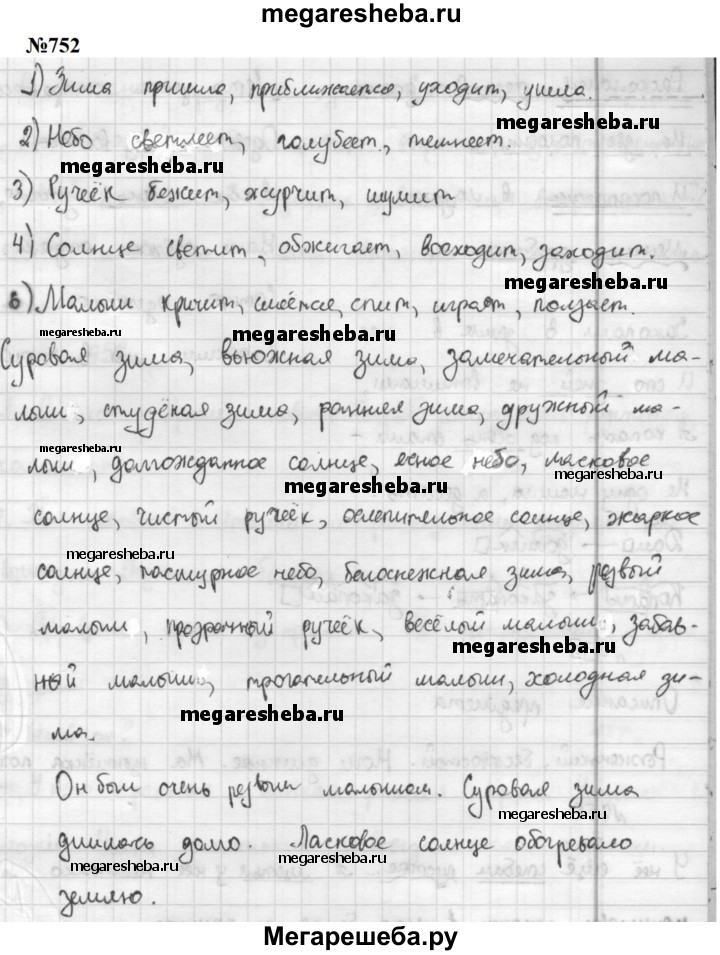 megaresheba.ru
№752
1) Зима пришла, приближается, уходит, ушла.
megaresheba.ru
2) Небо светлеет, голубеет, темнеет.
megaresheba.ru
3) Ручеёк бежит, журчит, шумит
4) Солнце светит, обжигает, восходит, заходит.
megaresheba.ru
5) Малыш кричит, смеётся, спит, играет, ползает.
megaresheba.ru
Суровая зима, вьюжная зима, замечательный ма-
лыш, студёная зима, ранняя зима, дружный ма-
megaresheba.ru
лыш, долгожданное солнце, ясное небо, ласковое
megaresheba.ru
солнце, чистый ручеёк, ослепительное солнце, жаркое
megaresheba.ru
солнце, пасмурное небо, белоснежная зима, резвый
малыш, прозрачный ручеёк, весёлый малыш, забав-
megaresheba.ru
ный малыш, трогательный малыш, холодная зи-
megaresheba.ru
ма.
Он был очень резвым малышом. Суровая зима
длилась долго. Ласковое солнце обогревало
megaresheba.ru
megaresheba.ru
землю.
megaresheba.ru
Мегарешеба.ру